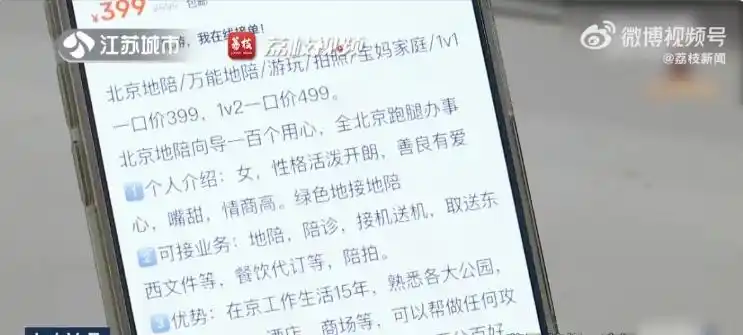 ¥399 包邮
江苏城市
荔枝
荔枝视频
微博视频号
@荔枝新闻
我在线接单!
北京地陪/万能地陪/游玩/拍照/宝妈家庭/1v1
一口价399，1v2一口价499。
北京地陪向导一百个用心，全北京跑腿办事
1个人介绍：女，性格活泼开朗，善良有爱
心，嘴甜，情商高。绿色地接地陪
2可接业务：地陪，陪诊，接机送机，取送东
西文件等，餐饮代订等，陪拍。
3优势：在京工作生活15年，熟悉各大公园，
酒店、商场等，可以帮做任何攻